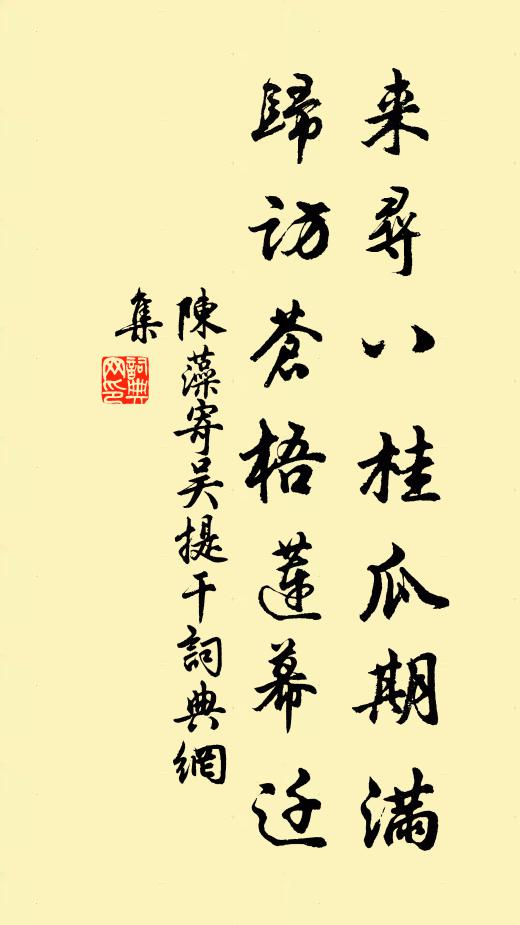 来尋八桂瓜期满
歸訪蒼梧蓮幕迁
陳藻寄吴提干詞典網
集
詞典网印